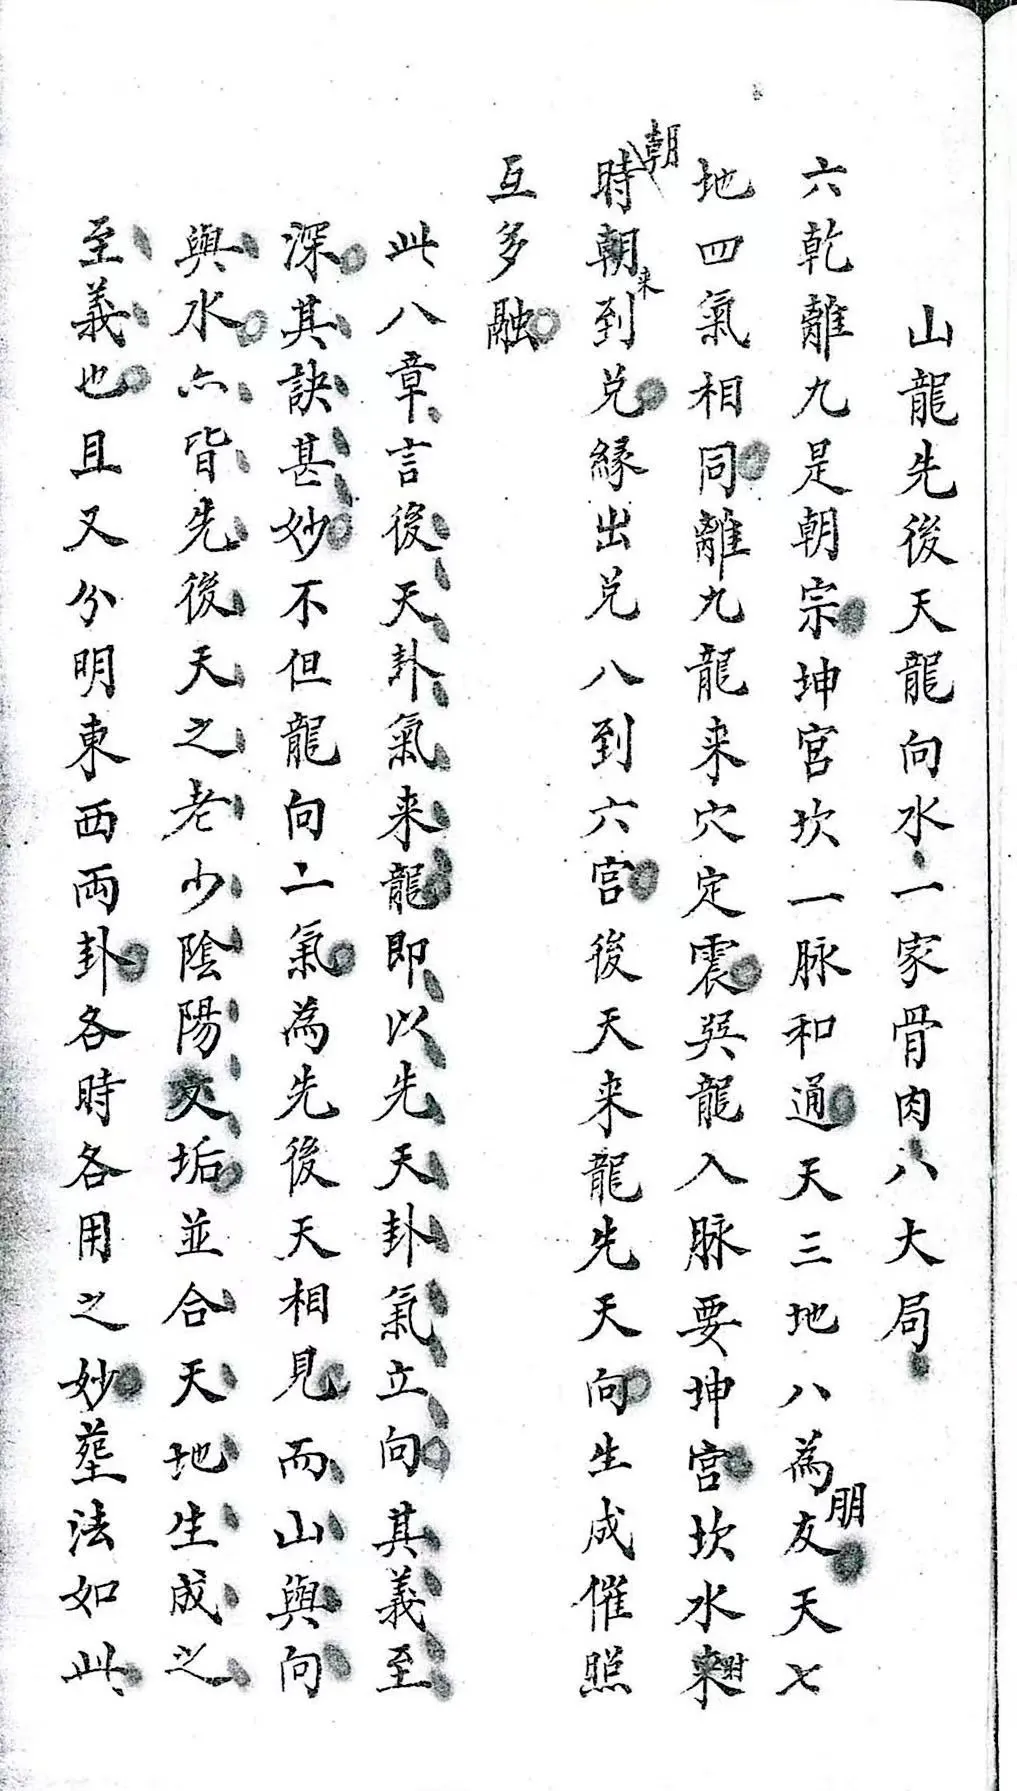 山龍先後天龍向水一家骨肉八大局
六乾離九是朝宗坤宮坎一脉和通天三地八為朋友天七
地四氣相同離九龍来穴定震吳龍入脉要坤宮坎水来時
時朝朝来到兑緣出兑八到六宮後天来龍先天向生成催照
互多融
此八章言後天卦氣来龍即以先天卦氣立向其義至
深其訣甚妙不但龍向二氣為先後天相見而山與向
與水亦皆先後天之老少陰陽交垢並合天地生成之
至義也且又分明東西両卦各時各用之妙塟法如此